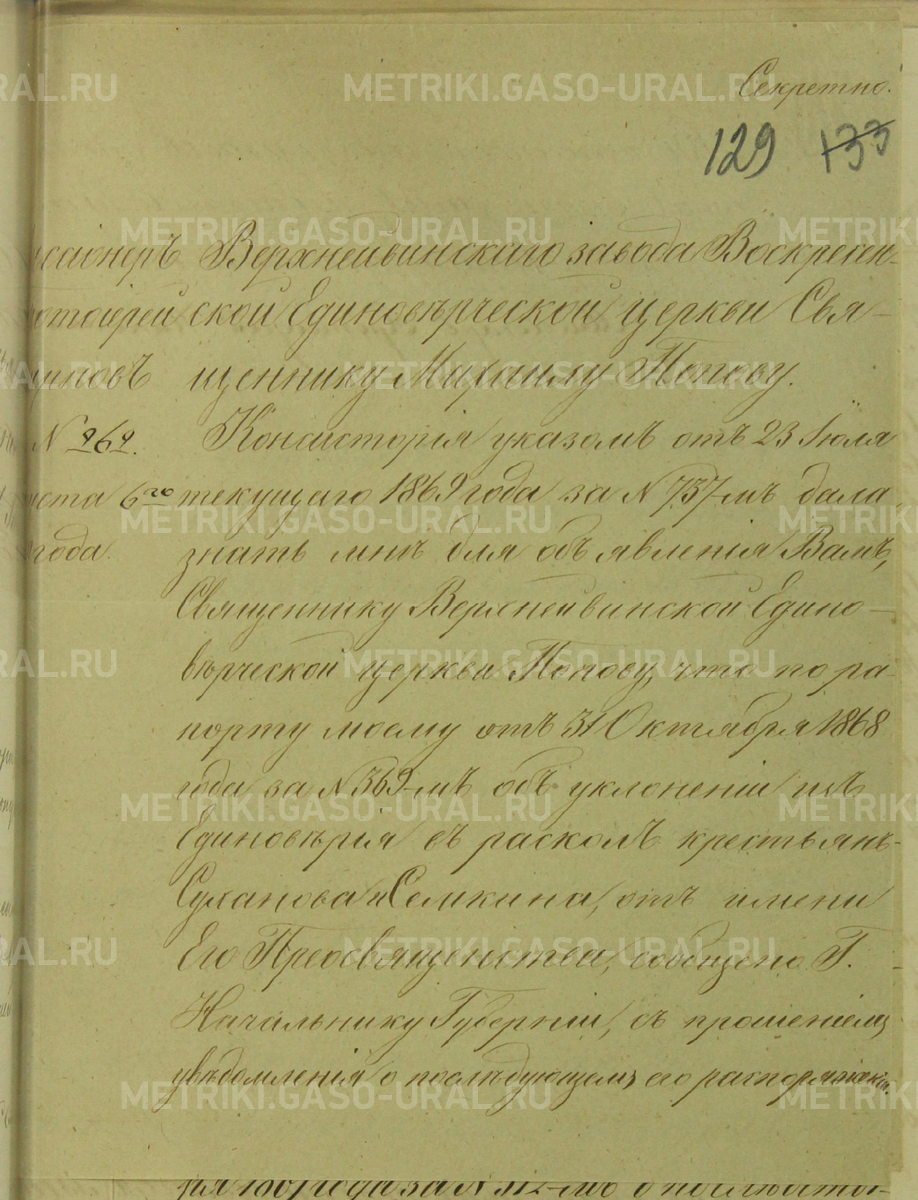 Секретно.
129 133
ссіонеръ
отоіерей
N 262.
ста 6го
года.
Верхнейвинскаго завода Воскресен-
ской Единовѣрческой церкви Свя-
щеннику Михаилу Попову.
Консисторія указомъ отъ 23 Іюля
текущаго 1869 года за N 737-мъ дала
знать мнѣ для объявленія Вамъ,
Священнику Верхнейвинской Едино-
вѣрческой церкви Попову, что по ра-
порту моему отъ 31 Октября 1868
года за N 369-мъ объ уклоненіи изъ
Единовѣрія въ расколъ крестьянъ
Суханова и Семкина, отъ имени
Его Преосвященства, сообщено Г.
Начальнику Губерніи, съ прошеніемъ
увѣдомленія о послѣдующемъ его распоряженіи.
METRIKI.GASO-URAL.RU